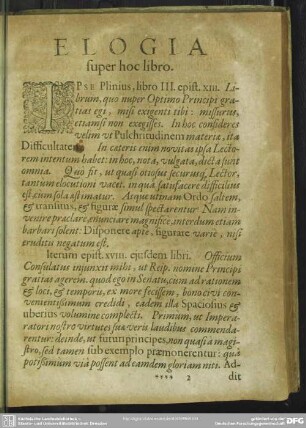 ELOGIA
super hoc libro.
IPSE Plinius, libro III. epist. XIII. Li-
brum, quo nuper Optimo Principi gra-
tias egi, misi exigenti tibi: missurus,
etiamsi non exegisses. In hoc consideres
velim vt Pulchritudinem materiæ, ita
Difficultatem. In ceteris enim nouitas ipsa Lecto-
rem intentum habet: in hoc, nota, vulgata, dicta sunt
omnia. Quo fit, ut quasi otiosus securusq, Lector,
tantum elocutioni vacet. in qua satisfacere difficilius
est, cum sola æstimatur. Atque utinam Ordo saltem,
& transitus, & figuræ simul spectarentur Nam in-
uenire præclare, enunciare magnifice, interdum etiam
barbari solent: Disponere apte, figurare varie, nisi
eruditis negatum est.
Iterum epist. XVIII. ejusdem libri. Officium
Consulatus injunxit mihi, ut Reip. nomine Principi
gratias agerem. quod ego in Senatu, cum ad rationem
& loci, & temporis, ex more fecissem, bono civi con-
venientissimum credidi, eadem illa Spatiosius &
uberius volumine complecti. Primum, ut Impera-
tori nostro virtutes suæ veris laudibus commenda-
rentur: deinde, ut futuri principes, non quasi a magi-
stro, sed tamen sub exemplo præmonerentur: quâ
potissimum viâ possent ad eamdem gloriam niti. Ad-
2 dit